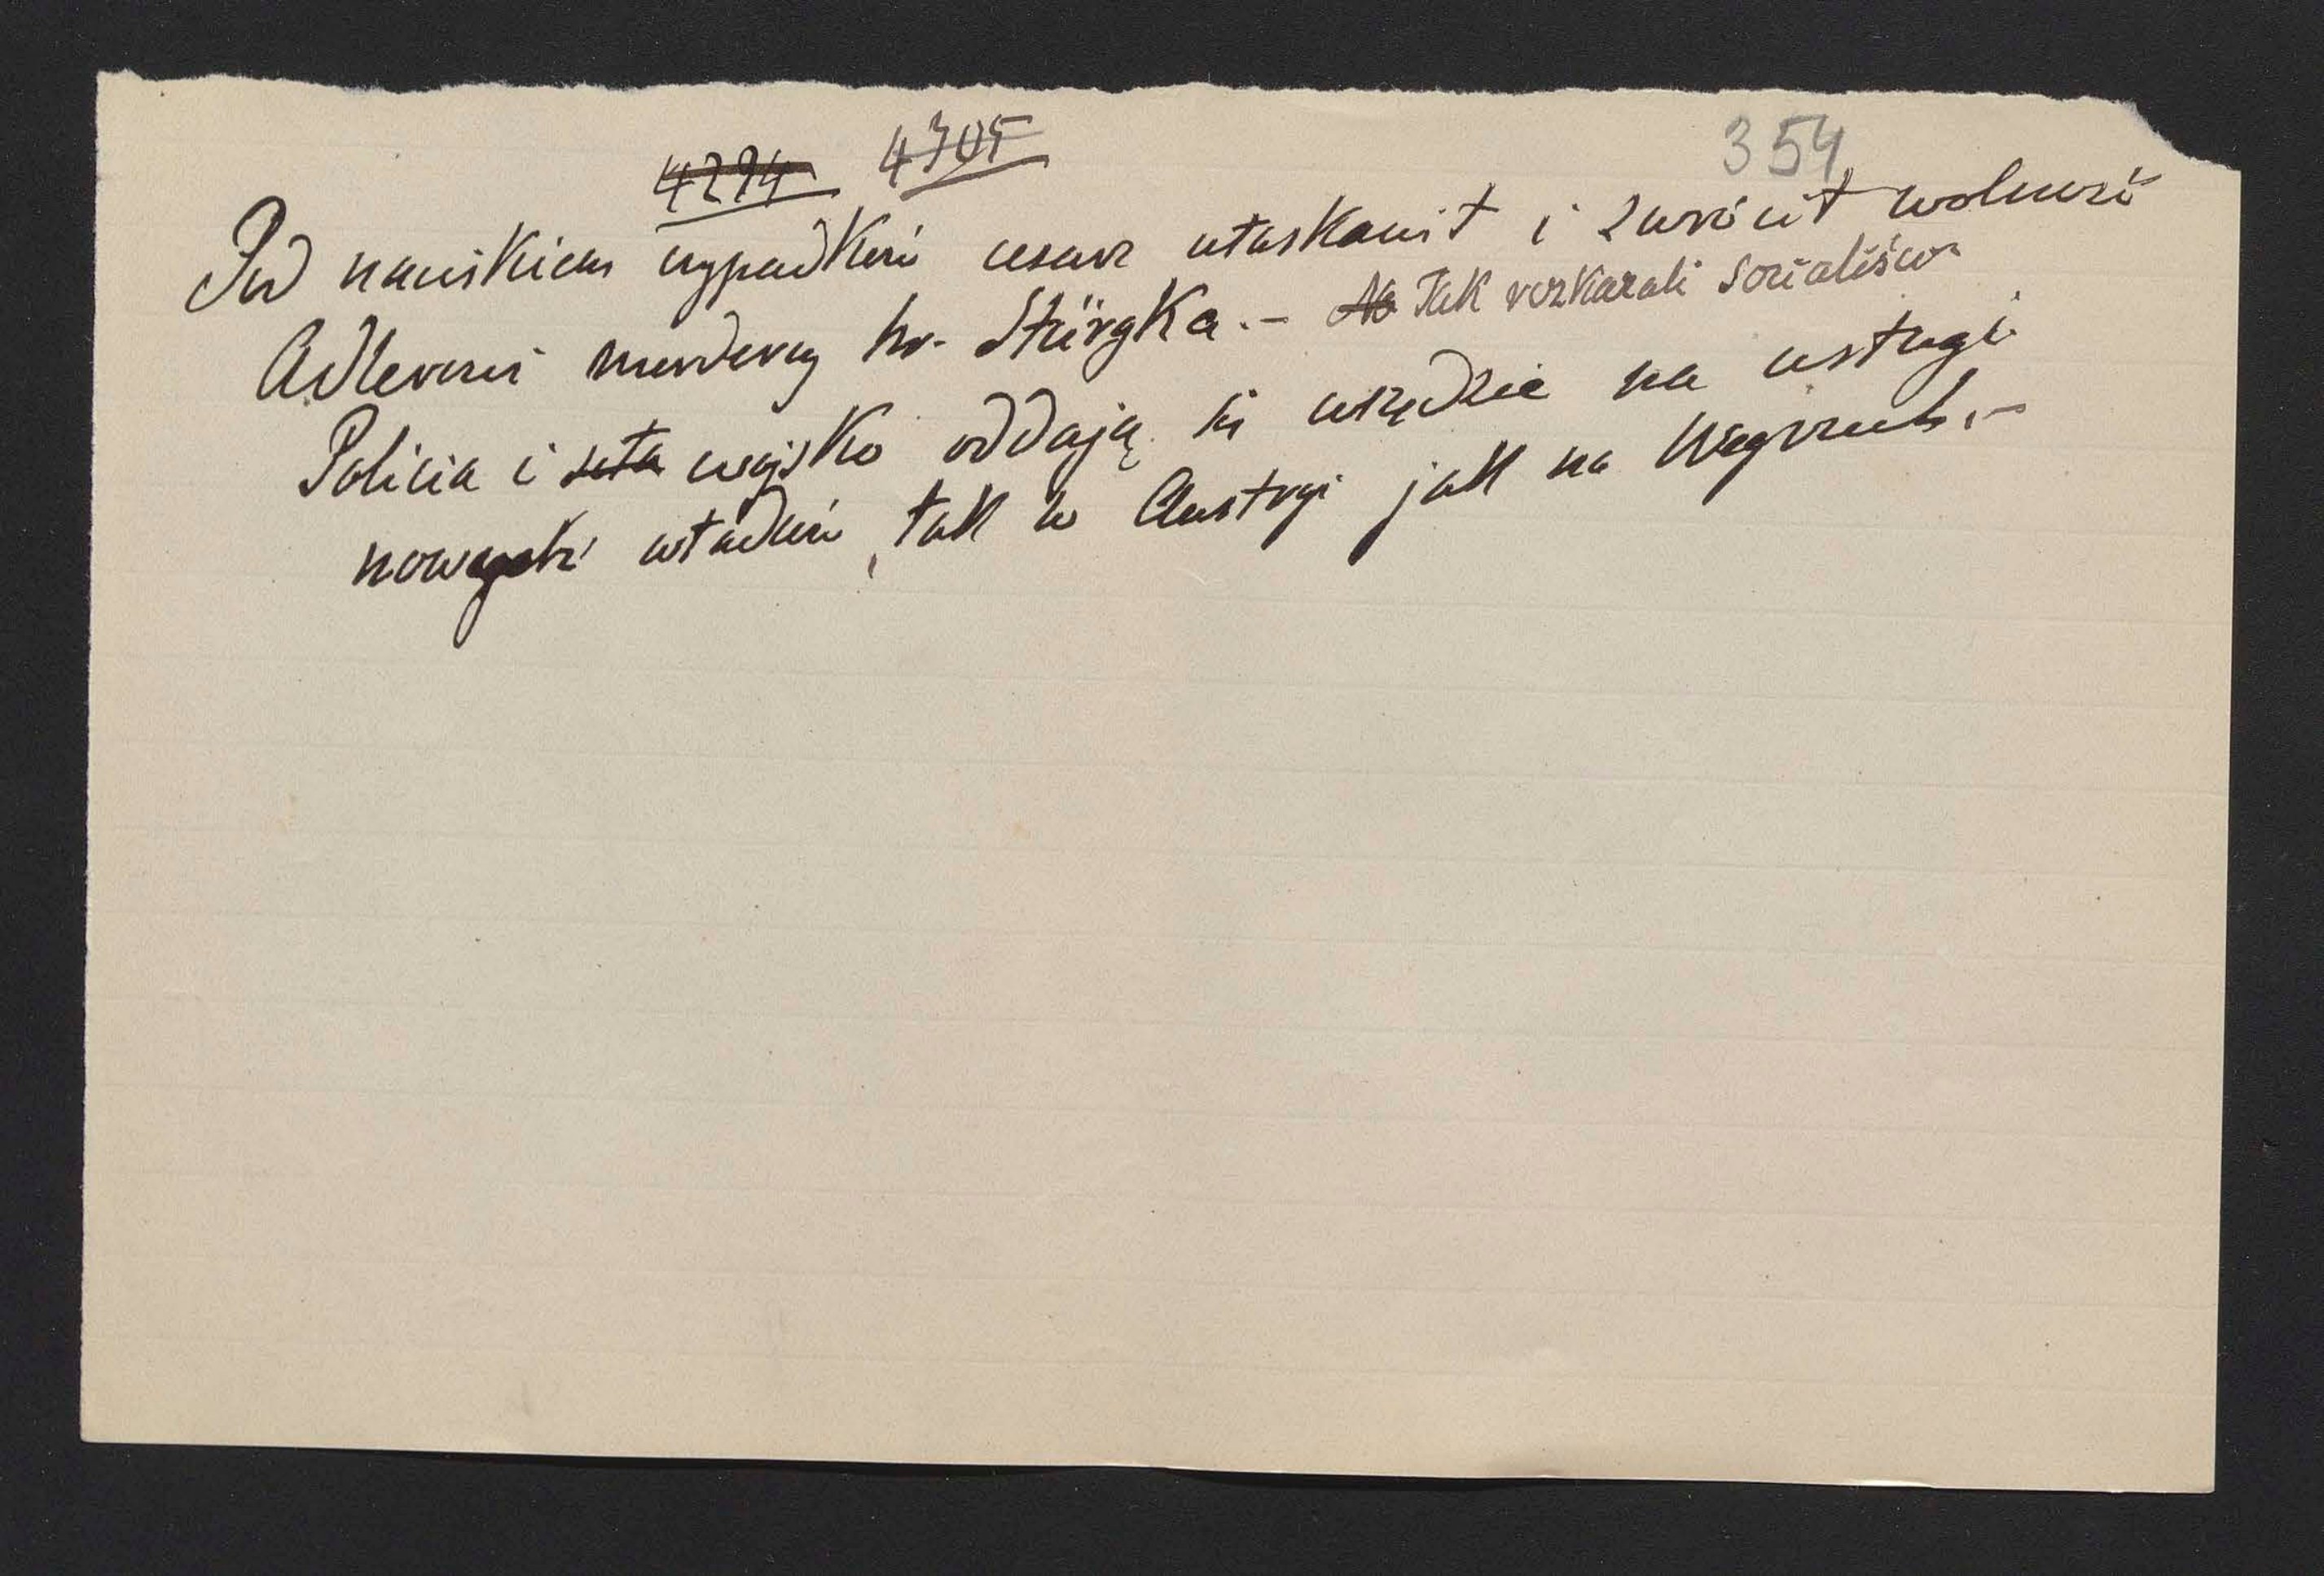 4294 4305 354
Pod naciskiem wypadków cesarz ułaskawił i zwrócił wolność
Adlerowi mordercy hr. Stürgka. – Tak rozkazali socialiści
Policia i wojsko oddają się wszędzie na usługi
nowych władców, tak w Austryi jak na Węgrzech. –